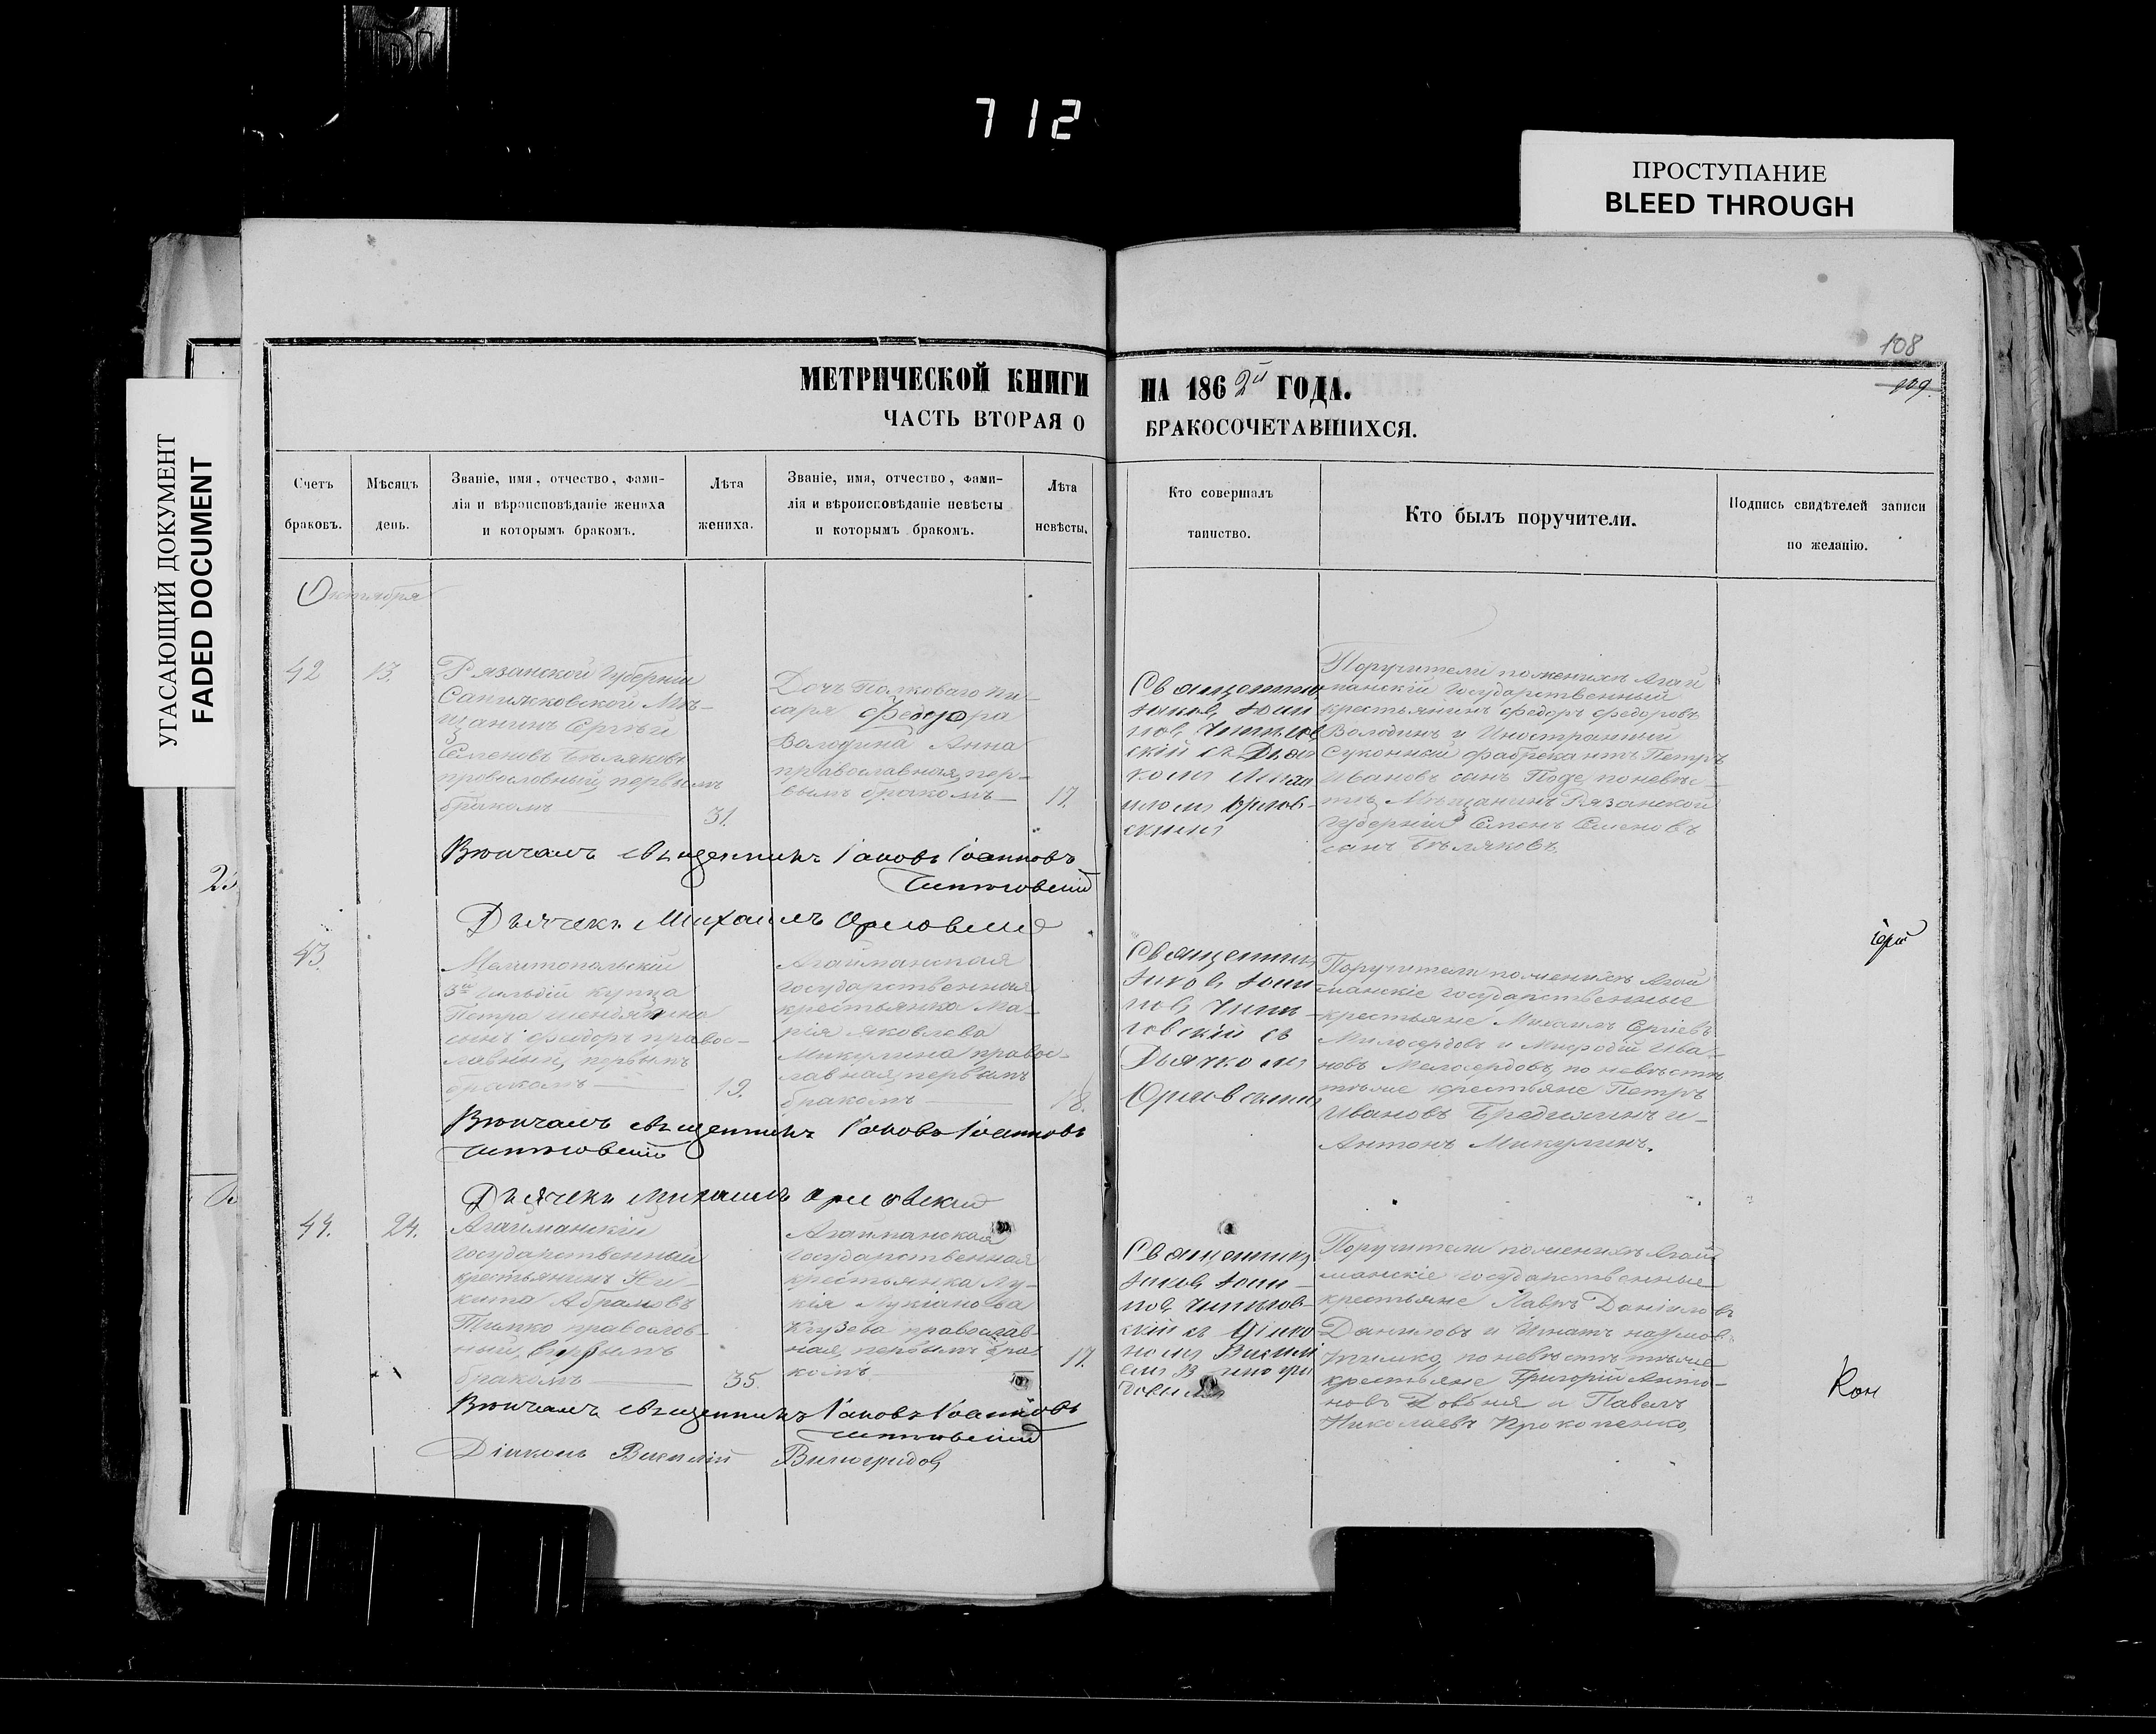 712
ПРОСТУПАНИЕ
BLEED THROUGH
УГАСАЮЩИЙ ДОКУМЕНТ
FADED DOCUMENT
108
109.
МЕТРИЧЕСКОЙ КНИГИ НА 1862й ГОДА.
ЧАСТЬ ВТОРАЯ О БРАКОСОЧЕТАВШИХСЯ.
Счетъ браковъ.
Мѣсяцъ день.
Званіе, имя, отчество, фами-
лія и вѣроисповѣданіе жениха
и которымъ бракомъ.
Лѣта жениха.
Званіе, имя, отчество, фами-
лія и вѣроисповѣданіе невѣсты
и которымъ бракомъ.
Лѣта невѣсты.
Кто совершалъ
таинство.
Кто былъ поручители.
Подпись свидѣтелей записи
по желанію.
Октября
42
13.
Рязанской Губерніи
Сапижковской Мѣ-
щанинъ Сергѣй
Семеновъ Бѣляковъ
православный, первымъ
бракомъ
31.
Дочь Полковаго пи-
саря Федора
Володина Анна
православная, пер-
вымъ бракомъ
17.
Священникъ
Іаковъ Іоан
новъ
скій съ Дьяч
комъ Миха
иломъ Орлов-
скимъ
Поручители по женихѣ Агай
манскій Государственный
крестьянинъ Федоръ Федоровъ
Володинъ и Иностранный
Суконный фабрикантъ Петръ
Ивановъ сынъ по невѣс-
тѣ, Мѣщанинъ Рязанской
Губерніи Семенъ Семеновъ
сынъ Бѣляковъ.
Вѣнчалъ священникъ Іаковъ Іоанновъ
Дьячекъ Михаилъ Орловскій
43.
Мелитопольскій
3й гильдіи купца
Петра
сынъ Федоръ правос-
лавный, первымъ
бракомъ
19.
Агайманская
государственная
крестьянка Ма-
рія Яковлева
Микулина правос-
лавная, первымъ
бракомъ
18.
Священникъ
Іаковъ Іоан
новъ
съ
Дьячкомъ
Орловскимъ
Поручители по женихѣ Агай
манскіе государственные
крестьяне Михаилъ Сергіевъ
Милосердовъ и Мефодій Ива-
новъ Милосердовъ, по невѣстѣ
тѣже крестьяне Петръ
Ивановъ и
Антонъ Микулинъ.
Вѣнчалъ священникъ Іаковъ Іоанновъ
Дьячекъ Михаилъ Орловскій
44.
24.
Агайманскій
государственный
крестьянинъ Ни-
кита Абрамовъ
Тимко православ-
ный, вторымъ
бракомъ
35.
Агайманская
государственная
крестьянка Лу-
кія Лукіанова
православ-
ная, первымъ бра
комъ
17.
Священникъ
Іаковъ Іоан-
новъ
скій съ Діако
номъ Василі
емъ Виногра
довымъ
Поручители по женихѣ Агай
манскіе государственные
крестьяне Лавръ Даніиловъ
Даниловъ и Игнатъ Наумовъ
Тимко, по невѣстѣ тѣже
крестьяне Григорій Анто-
новъ Довбня и Павелъ
Николаевъ Прокопенко,
Вѣнчалъ священникъ Іаковъ Іоанновъ
Діаконъ Василій Виноградовъ
Кон